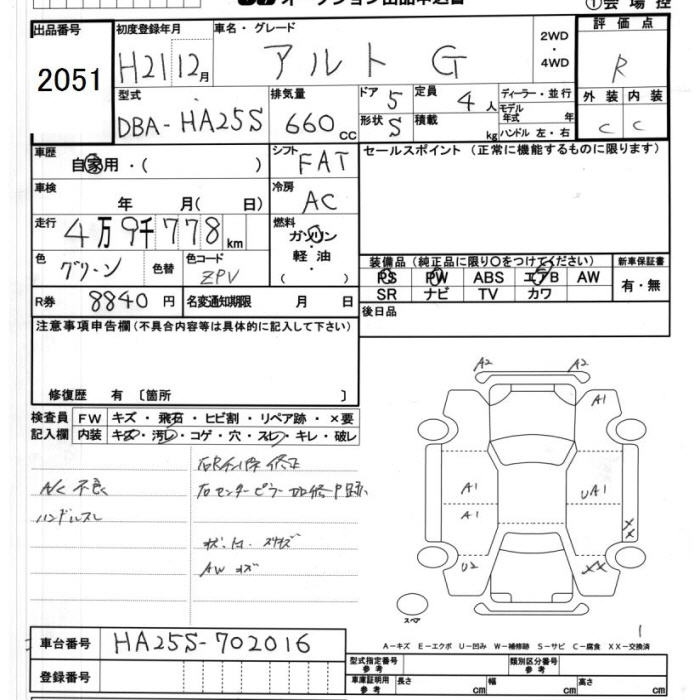 オークション出品申込書
①会場控
出品番号
2051
初度登録年月
H21 12月
車名・グレード
アルト G
2WD
・
4WD
評価点
R
外装 内装
C C
型式
DBA-HA25S
排気量
660cc
ドア 5
形状 S
定員 4人
積載 kg
ディーラー・並行
モデル年式 年
ハンドル 左・右
車歴
自家用・( )
シフト
FAT
セールスポイント (正常に機能するものに限ります)
車検
年 月( 日)
冷房
AC
走行
4万9千778km
燃料
ガソリン
軽油
( ・ )
色
グリーン
色替
色コード
ZPV
装備品(純正品に限り〇をつけてください)
PS PW ABS エアB AW
SR ナビ TV カワ
新車保証書
有・無
R券 8840円
名変通知期限 月 日
後日品
注意事項申告欄(不具合内容等は具体的に記入して下さい)
修復歴 有 〔箇所 〕
検査員
記入欄
FW キズ・飛石・ヒビ割・リペア跡・×要
内装 キズ・汚レ・コゲ・穴・スレ・キレ・破レ
A/C 不良
ハンドルスレ
修正
右センターピラー
AW キズ
A2 A2
A1
A1 UA1
A1
XX
U2 XX
スペア
A-キズ E-エクボ U-凹み W-補修跡 S-サビ C-腐食 XX-交換済
車台番号 HA25S-702016
登録番号
型式指定番号
参考
類別区分番号
参考
車庫証明用
参考
長さ cm 幅 cm 高さ cm